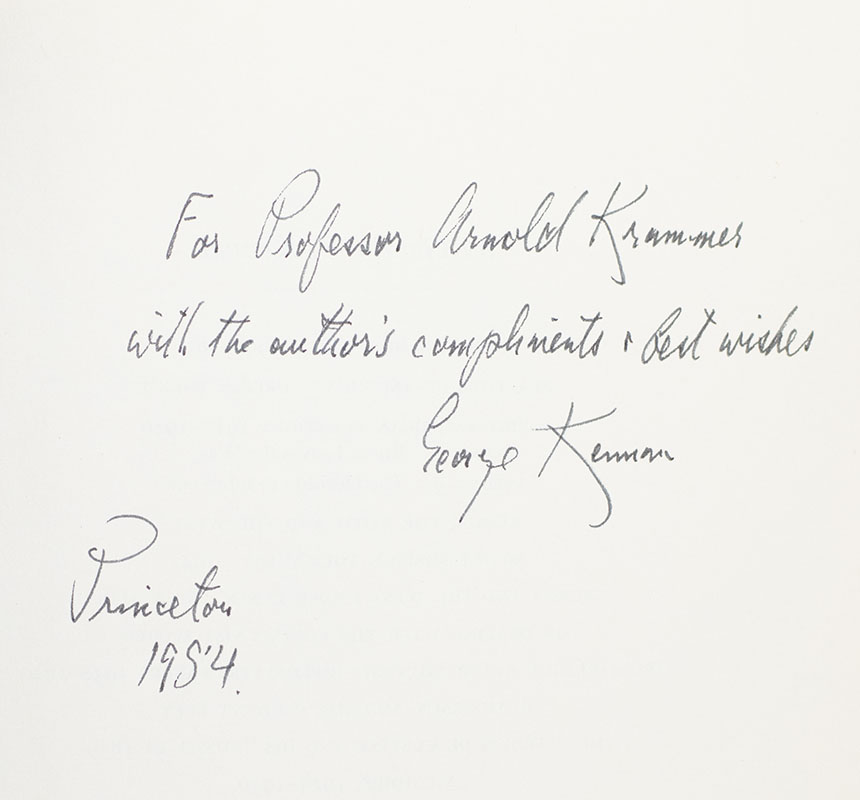 For Professor Arnold Krammer
with the author's compliments & best wishes
George Kennan
Princeton
1984.